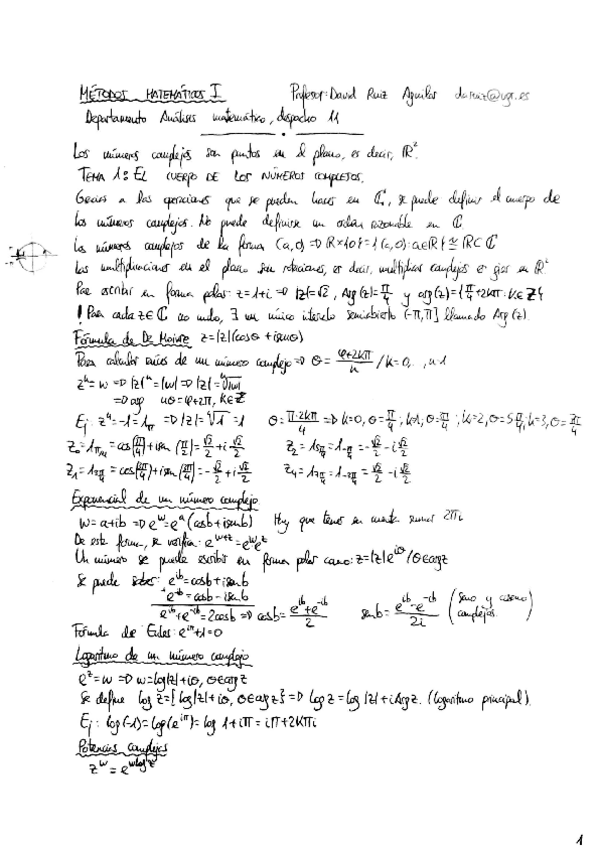 MÉTODOS MATEMÁTICOS I Profesor: David Ruiz Aguilar daruiz@ugr.es
Departamento Análisis matemático, despacho 11
Los números complejos son puntos en el plano, es decir, ℝ².
TEMA 1: EL CUERPO DE LOS NÚMEROS COMPLEJOS.
Gracias a las operaciones que se pueden hacer en ℂ, se puede definir el cuerpo de
los números complejos. No puede definirse un orden razonable en ℂ.
Los números complejos de la forma (a,0) => ℝ×{0} = {(a,0): a∈ℝ} ≅ ℝ⊂ℂ
Las multiplicaciones en el plano son rotaciones, es decir, multiplicar complejos es girar en ℝ²
Para escribir en forma polar: z=1+i => |z|=√2, Arg(z)=π/4 y arg(z)={π/4+2kπ: k∈ℤ}
! Para cada z∈ℂ no nulo, ∃ un único intervalo semiabierto (-π,π] llamado Arg(z).
Fórmula de De Moivre z=|z|(cosθ+isenθ)
Para calcular raíces de un número complejo => θ = (φ+2kπ)/n / k=0,..,n-1
zⁿ=w => |z|ⁿ=|w| => |z|=ⁿ√|w|
=> arg nθ=φ+2π, k∈ℤ
Ej: z⁴=-1=1π => |z|=⁴√1=1 θ=(π+2kπ)/4 => k=0, θ=π/4; k=1, θ=3π/4; k=2, θ=5π/4, k=3, θ=7π/4
z₀=1π/4=cos(π/4)+isen(π/4)=√2/2+i√2/2 z₂=1 5π/4=1-3π/4=-√2/2-i√2/2
z₁=1 3π/4=cos(3π/4)+isen(3π/4)=-√2/2+i√2/2 z₄=1 7π/4=1-π/4=√2/2-i√2/2
Exponencial de un número complejo
w=a+ib => eʷ=eᵃ(cosb+isenb) Hay que tener en cuenta sumar 2πi
De esta forma, se verifica: e^(w+z)=e^w e^z
Un número se puede escribir en forma polar como: z=|z|e^(iθ) /θ∈argz
Se puede saber: e^(ib)=cosb+isenb
+e^(-ib)=cosb-isenb
e^(ib)+e^(-ib)=2cosb => cosb=(e^(ib)+e^(-ib))/2 senb=(e^(ib)-e^(-ib))/2i (seno y coseno complejos)
Fórmula de Euler: e^(iπ)+1=0
Logaritmo de un número complejo
e^z=w => w=log|z|+iθ, θ∈argz
Se define log z={log|z|+iθ, θ∈argz} => Log z=log|z|+iArgz. (logaritmo principal).
Ej: log(-1)=log(e^(iπ))=log 1+iπ=iπ+2kπi
Potencias complejas
z^w=e^(wlogz)
1